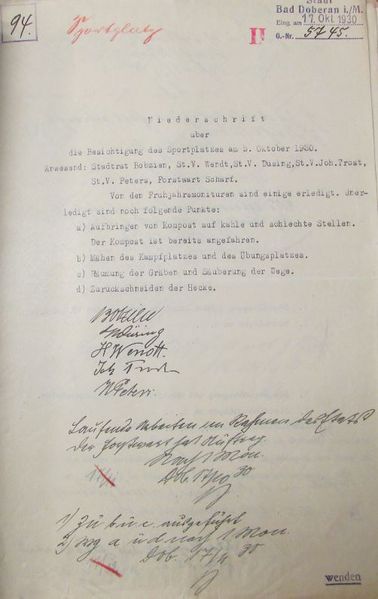 94.
Sportplatz
II
Stadt
Bad Doberan i./M.
Eing. am 17. Okt. 1930
G.-Nr. 5745.
Niederschrift
über
die Besichtigung des Sportplatzes am 5. Oktober 1930.
Anwesend: Stadtrat Bobzien, St.V. Wendt, St.V. Düsing, St.V. Joh. Trost,
St.V. Peters, Forstwart Scharf.
Von den Frühjahrsmonituren sind einige erledigt. Uner-
ledigt sind noch folgende Punkte:
a) Aufbringen von Kompost auf kahle und schlechte Stellen.
Der Kompost ist bereits angefahren.
b) Mähen des Kampfplatzes und des Übungsplatzes.
c) Räumung der Gräben und Säuberung der Wege.
d) Zurückschneiden der Hecke.
Bobzien
Düsing
H Wendt.
Joh Trost
Peters.
Laufende Arbeiten im Rahmen des Etats
der Forstwart hat Auftrag
Nach 1 Mon.
Dob. 30
1) zu b u c ausgeführt
2) a u d nach 1 Mon.
Dob. 17/11 30
wenden